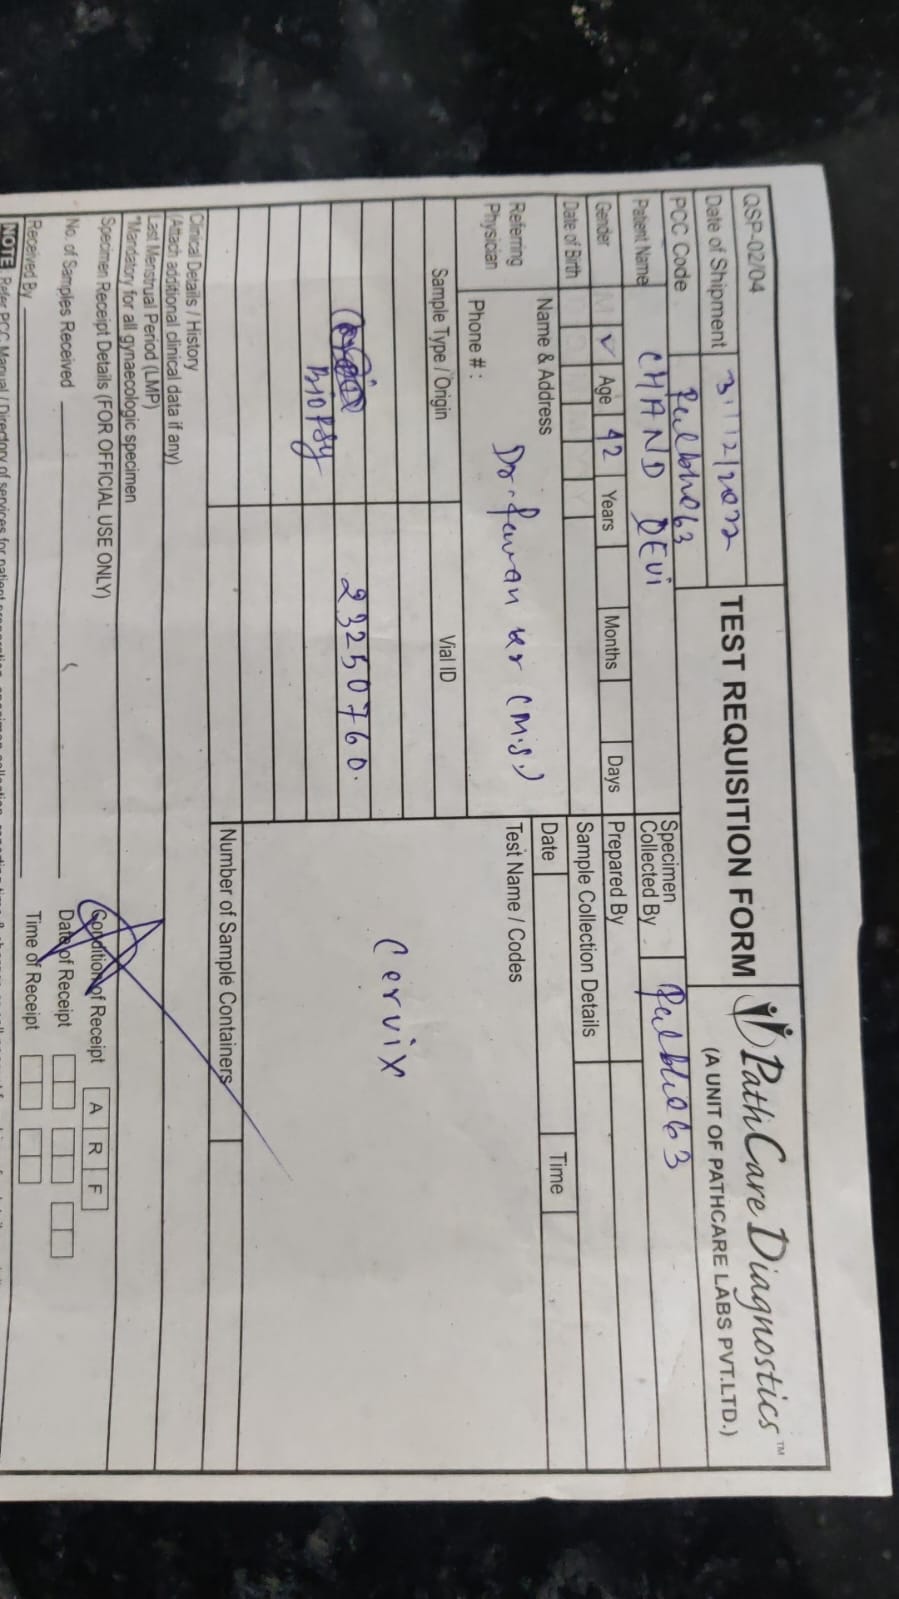 QSP-02/04
TEST REQUISITION FORM
PathCare Diagnostics™
(A UNIT OF PATHCARE LABS PVT.LTD.)
Date of Shipment 31/12/2022
PCC Code
Specimen Collected By
Patient Name CHAND DEVi
Gender M ✓ Age 42 Years Months Days
Prepared By
Date of Birth
Sample Collection Details
Date Time
Referring Physician
Name & Address Dr. Pawan kr (M.S.)
Phone # :
Test Name / Codes
Sample Type / Origin Vial ID
Biopsy
23250760.
Cervix
Number of Sample Containers
Clinical Details / History
(Attach additional clinical data if any)
Last Menstrual Period (LMP)
*Mandatory for all gynaecologic specimen
Specimen Receipt Details (FOR OFFICIAL USE ONLY)
Condition of Receipt A R F
No. of Samples Received
Date of Receipt
Received By
Time of Receipt
NOTE Refer PCC Manual / Directory of services for patient preparation, specimen collection,